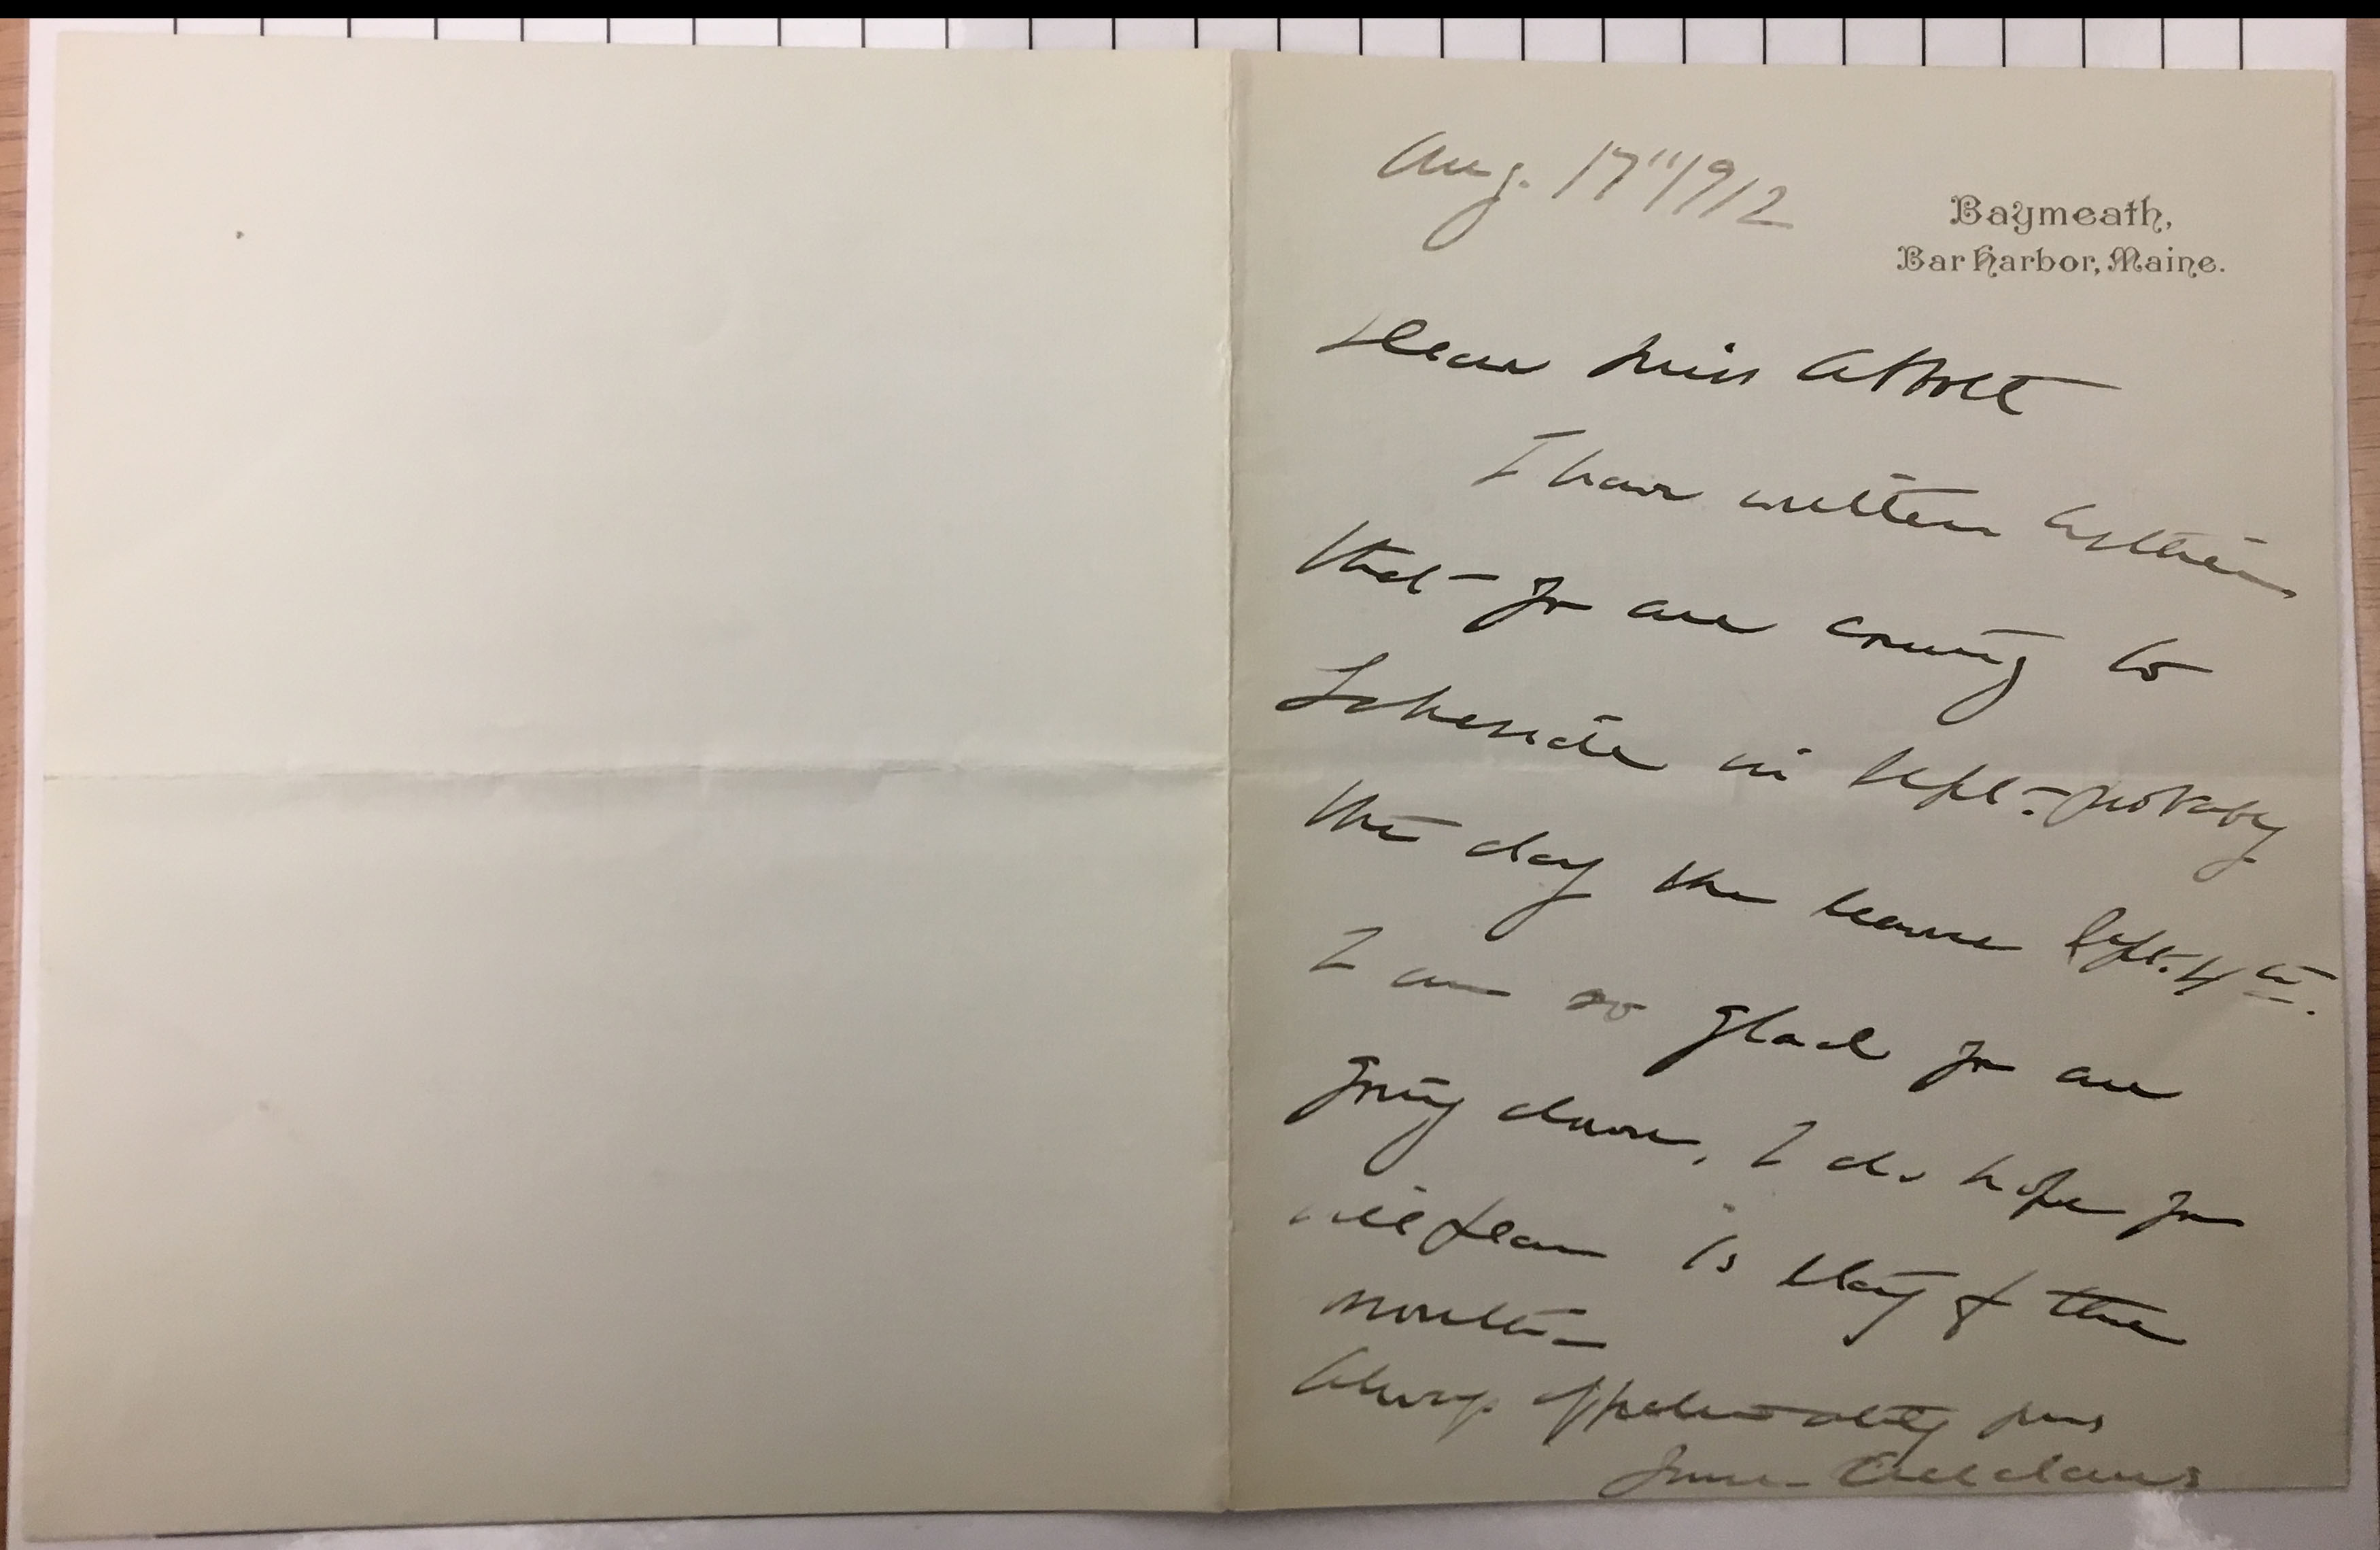 Aug. 17" 1912
Baymeath,
Bar Harbor, Maine.
Dear Miss Abbott
I have written
that you are coming to
Lakeside in Sept - probably
the day the leave Sept. 4th.
I am so glad you are
going down, I do hope you
will plan to stay & the
month -
Always affectionately yours
Jane Addams